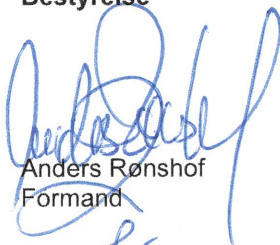 Bestyrelse
Anders Rønshof
Formand